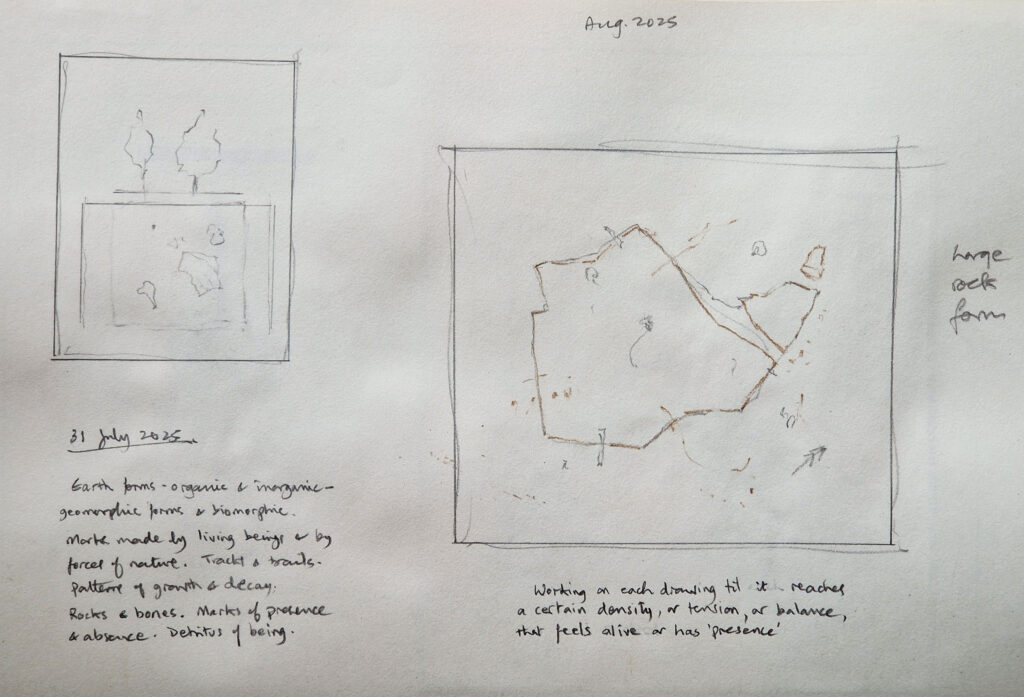 Aug. 2025
31 July 2025.
Earth forms - organic & inorganic -
geomorphic forms & biomorphic.
Marks made by living beings & by
forces of nature. Tracks & trails.
Patterns of growth & decay.
Rocks & bones. Marks of presence
& absence. Detritus of being.
Large
rock
form
Working on each drawing til it reaches
a certain density, or tension, or balance,
that feels alive or has 'presence'